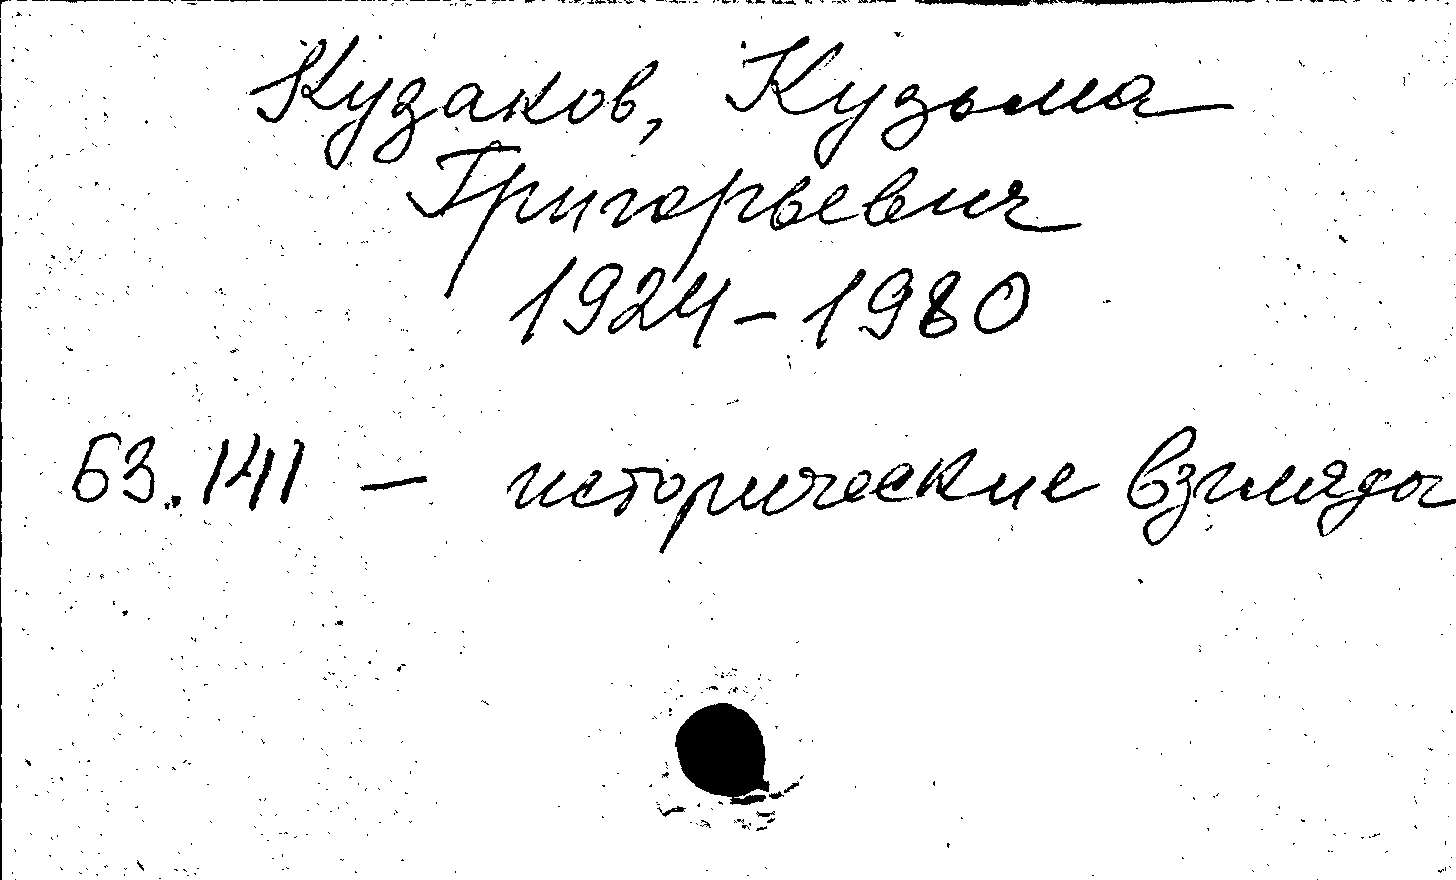 Кузаков, Кузьма
Григорьевич
1924-1980
63.141 — исторические взгляды